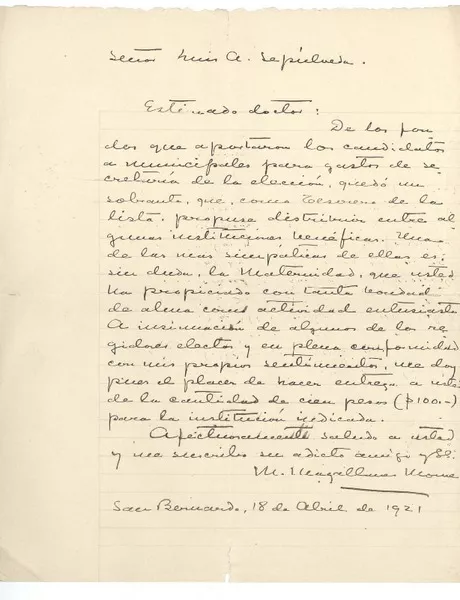 Señor Luis A. Sepúlveda.
Estimado doctor:
De los fon
dos que aportaron los candidatos
a municipales para gastos de se
cretaría de la elección, quedó un
sobrante, que, como tesorero de la
lista, propuse distribuir entre al
gunas instituciones benéficas. Una
de las mas simpáticas de ellas es,
sin duda, la Maternidad, que usted
ha propiciado con tanta bondad
de alma como actividad entusiasta.
A insinuación de algunos de los re
gidores electos y en plena conformidad
con mis propios sentimientos, me doy
pues el placer de hacer entrega a usted
de la cantidad de cien pesos ($100.-)
para la institución indicada.
Afectuosamente saludo a usted
y me suscribo su adicto amigo y
M. Magallanes Moure
San Bernardo, 18 de Abril de 1921